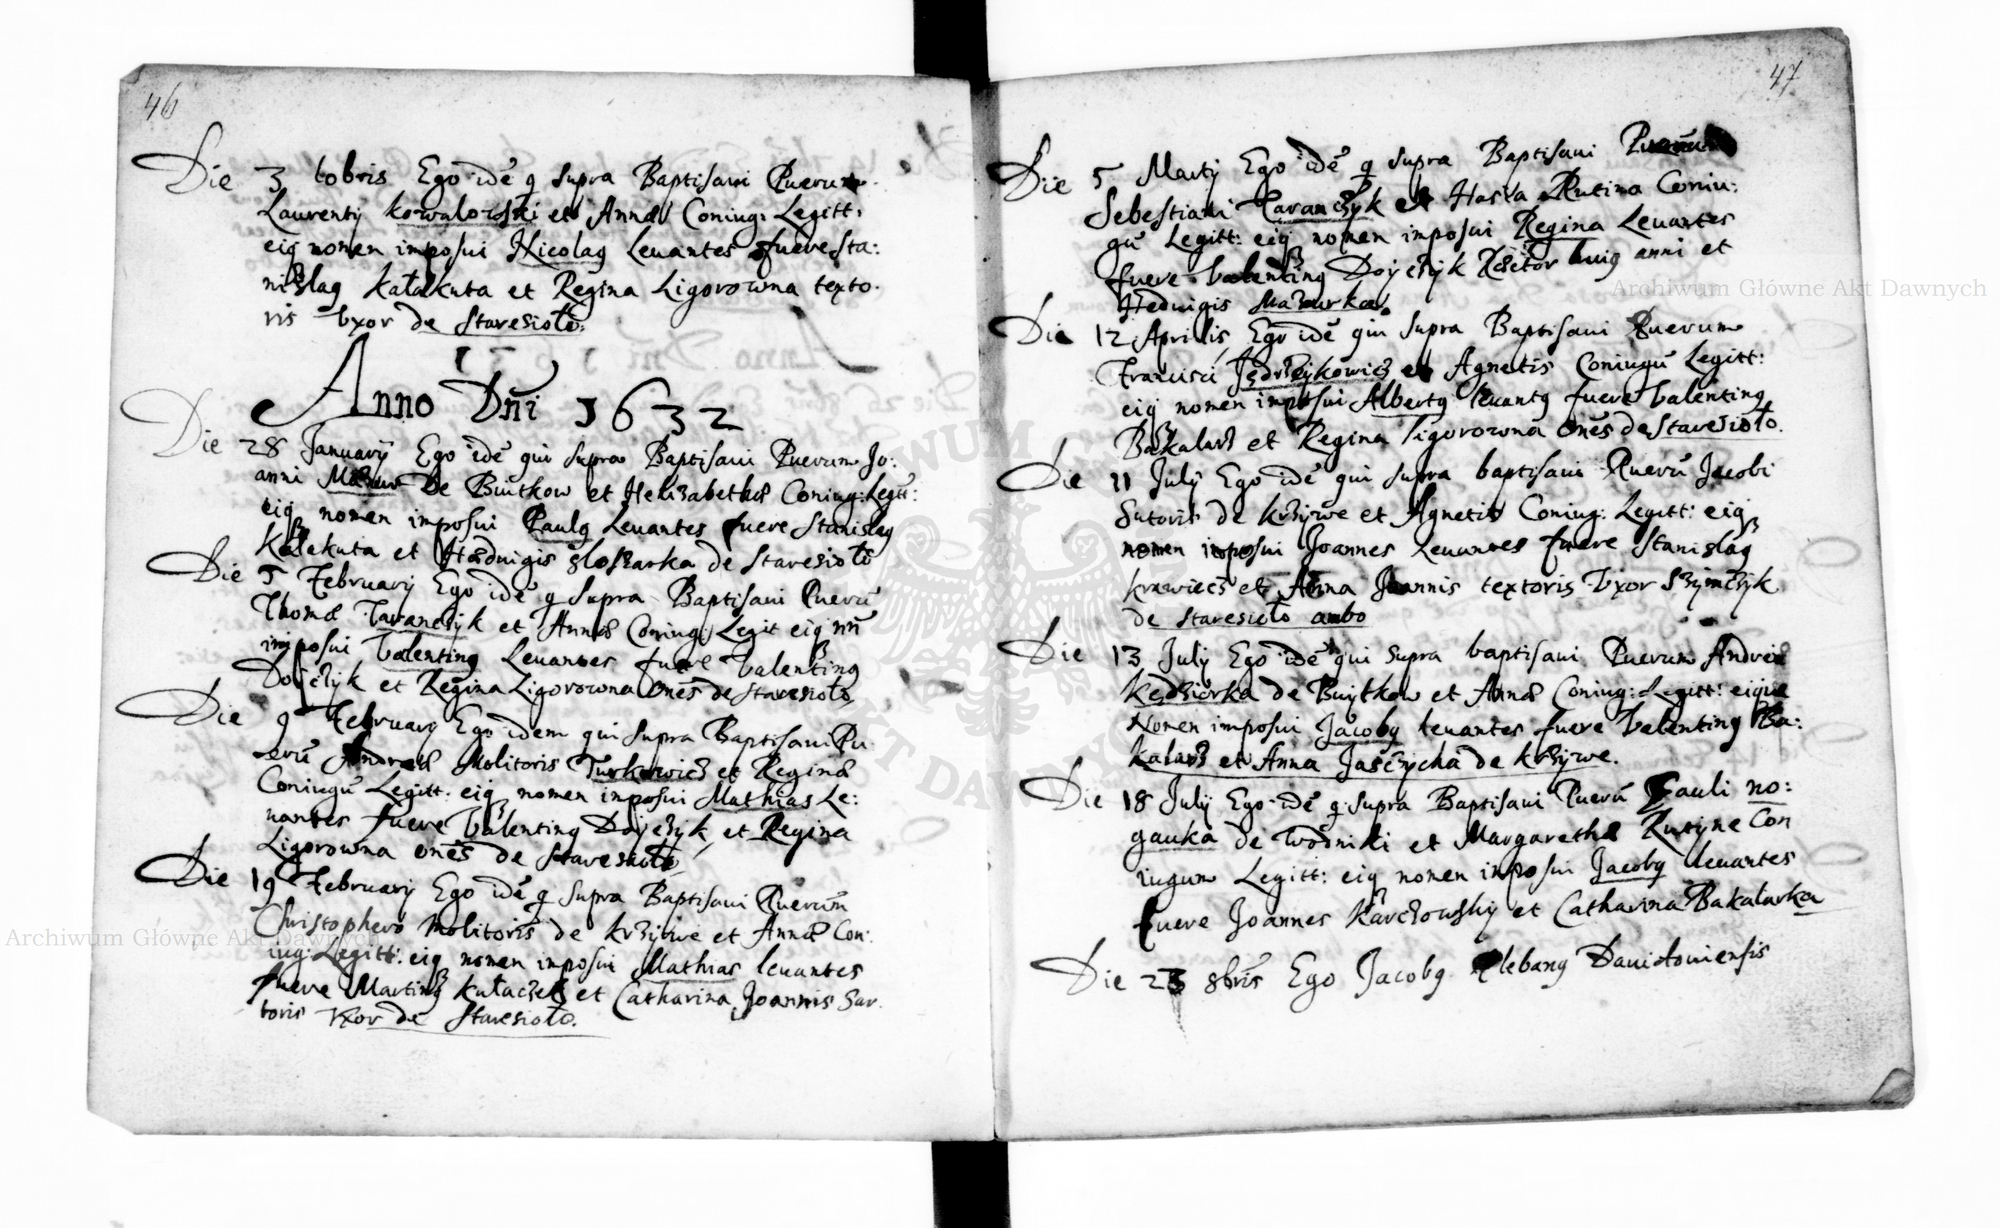 46
Die 3 10bris Ego idē q supra Baptisavi Puerum
Laurentij Kowalowski et Annæ Coniug: Legitt:
eiq nomen imposui Nicolaq Levantes fuere Sta:
nislaq Kałakuta et Regina Ligorowna texto-
ris Vxor de Staresioło.
Anno Dñi 1632
Die 28 Januarij Ego idē qui supra Baptisavi Puerum Jo:
anni Mazur De Buitkow et Helizabethæ Coniug: Legitt:
eiq nomen imposui Paulq Levantes fuere Stanislaq
Kalekuta et Hæduigis Gloskarka de Staresioło
Die 5 February Ego idē q supra Baptisavi Puerū
Thomæ Taranczyk et Annæ Coniug Legit eiq nn̄
imposui Valentinq Levantes fuere Valentinq
Dojczyk et Regina Ligorowna onēs de Staresioło
Die 9 February Ego idem qui supra Baptisavi Pu
erū Andreæ Molitoris Turkowicz et Reginæ
Coniugū Legitt: eiq nomen imposui Mathias Le:
uantes fuere Valentinq Dojczyk, et Regina
Ligorowna onēs de Staresioło
Die 19 February Ego idē q supra Baptisavi Puerum
Christophero Molitoris de Krzijwe et Annæ Con:
iug: Legitt: eiq nomen imposui Mathias levantes
fuere Martinq Kułaczek et Catharina Joannis Sar-
toris Vxor de Staresioło.
47
Die 5 Martij Ego idē q supra Baptisavi Puerum
Sebestiani Taranczyk et Rutina Coniu:
gū Legitt: eiq nomen imposui Regina Levantes
fuere Valentinq Dojczyk huiq anni et
Heduigis Mazurka.
Die 12 Aprilis, Ego idē qui supra Baptisavi Puerum
Francisci Jędrzejkowicz et Agnetis Coniugū Legitt:
eiq nomen imposui Albertq levantq fuere Valentinq
Bakalarz et Regina Ligorowna onēs de Staresioło.
Die 11 July Ego idē qui supra baptisavi Puerū Jacobi
Sutoris de Krzijwe et Agnetis Coniug: Legitt: eiq
nomen imposui Joannes Levantes fuere Stanislaq
Krawiecz et Anna Joannis textoris Vxor Szymczyk
de Staresioło ambo
Die 13 July Ego idē qui supra baptisavi Puerum Andreæ
Kędziorka de Buijtkow et Annæ Coniug: Legitt: eique
Nomen imposui Jacobq levantes fuere Valentinq Ba:
kalarz et Anna Jasczycha de Krzijwe.
Die 18 July Ego idē q supra Baptisavi Puerū Pauli no:
gauka de Wodniki et Margarethæ Rutyne Con
iugum Legitt: eiq nomen imposui Jacobq levantes
fuere Joannes Karczowskij et Catharina Bakalarka
Die 23 8bris Ego Jacobq Plebanq Dauidouiensis
Archiwum Główne Akt Dawnych
Archiwum Główne Akt Dawnych